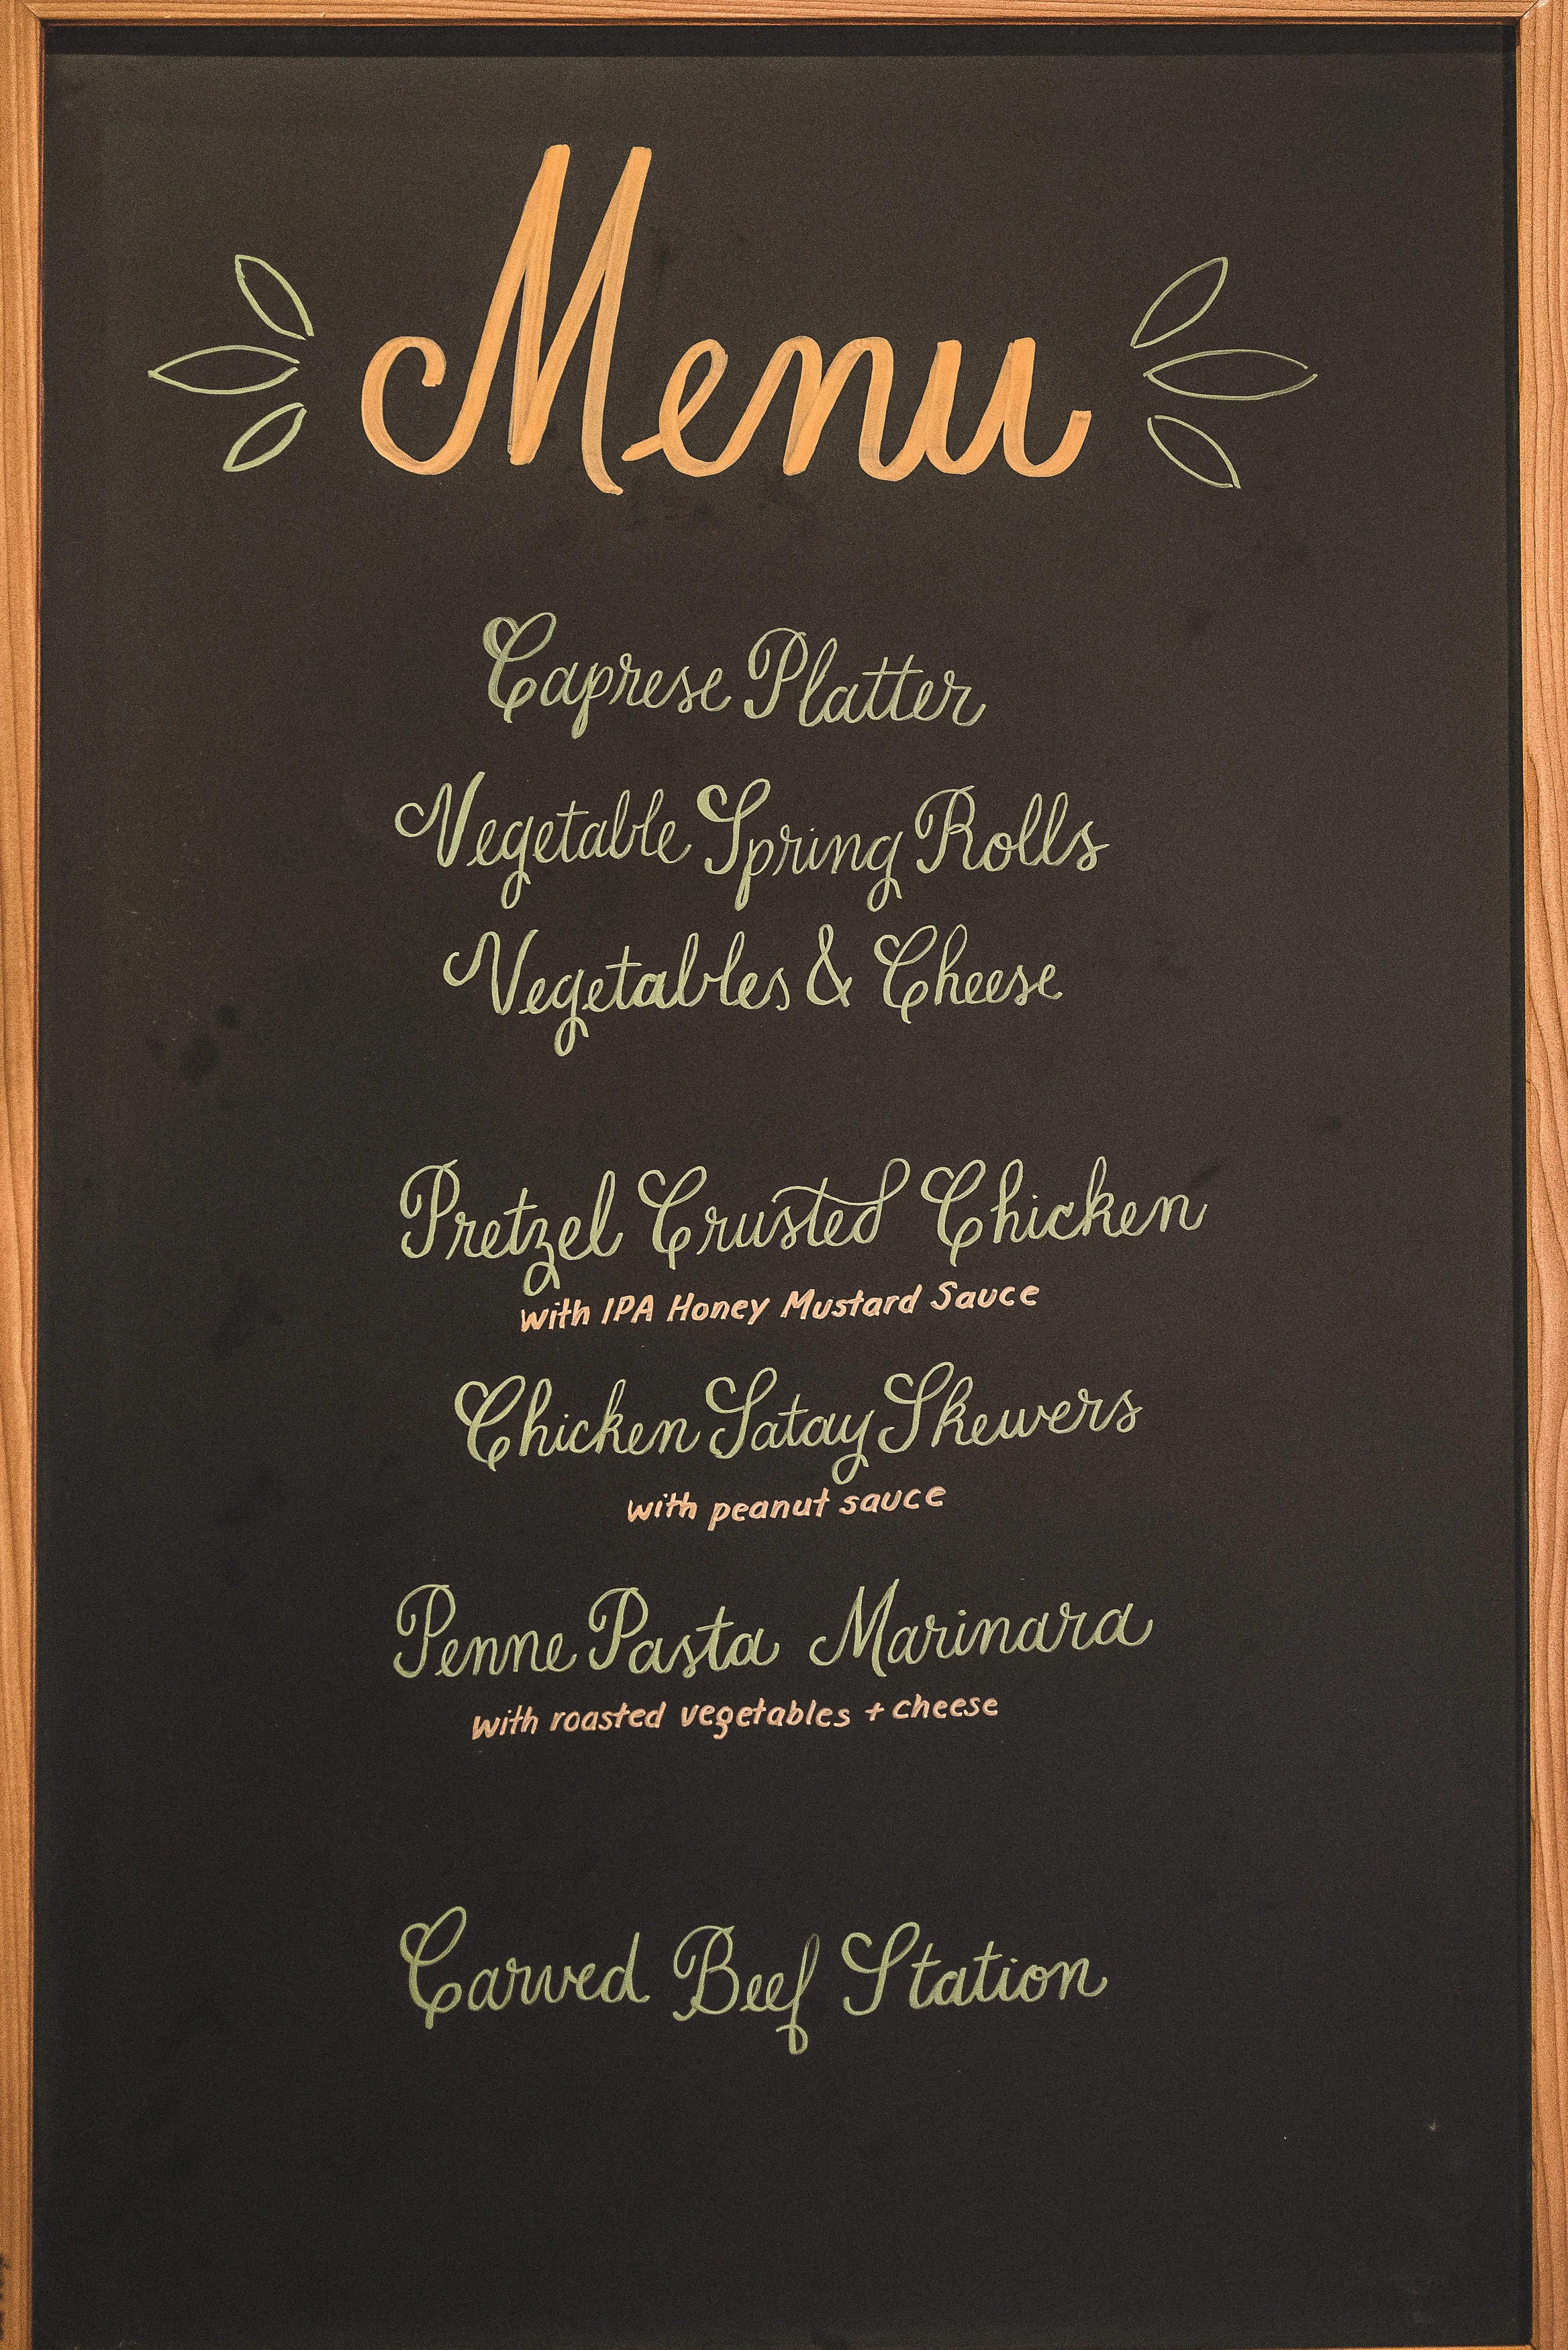 Menu
Caprese Platter
Vegetable Spring Rolls
Vegetables & Cheese
Pretzel Crusted Chicken
with IPA Honey Mustard Sauce
Chicken Satay Skewers
with peanut sauce
Penne Pasta Marinara
with roasted vegetables + cheese
Carved Beef Station